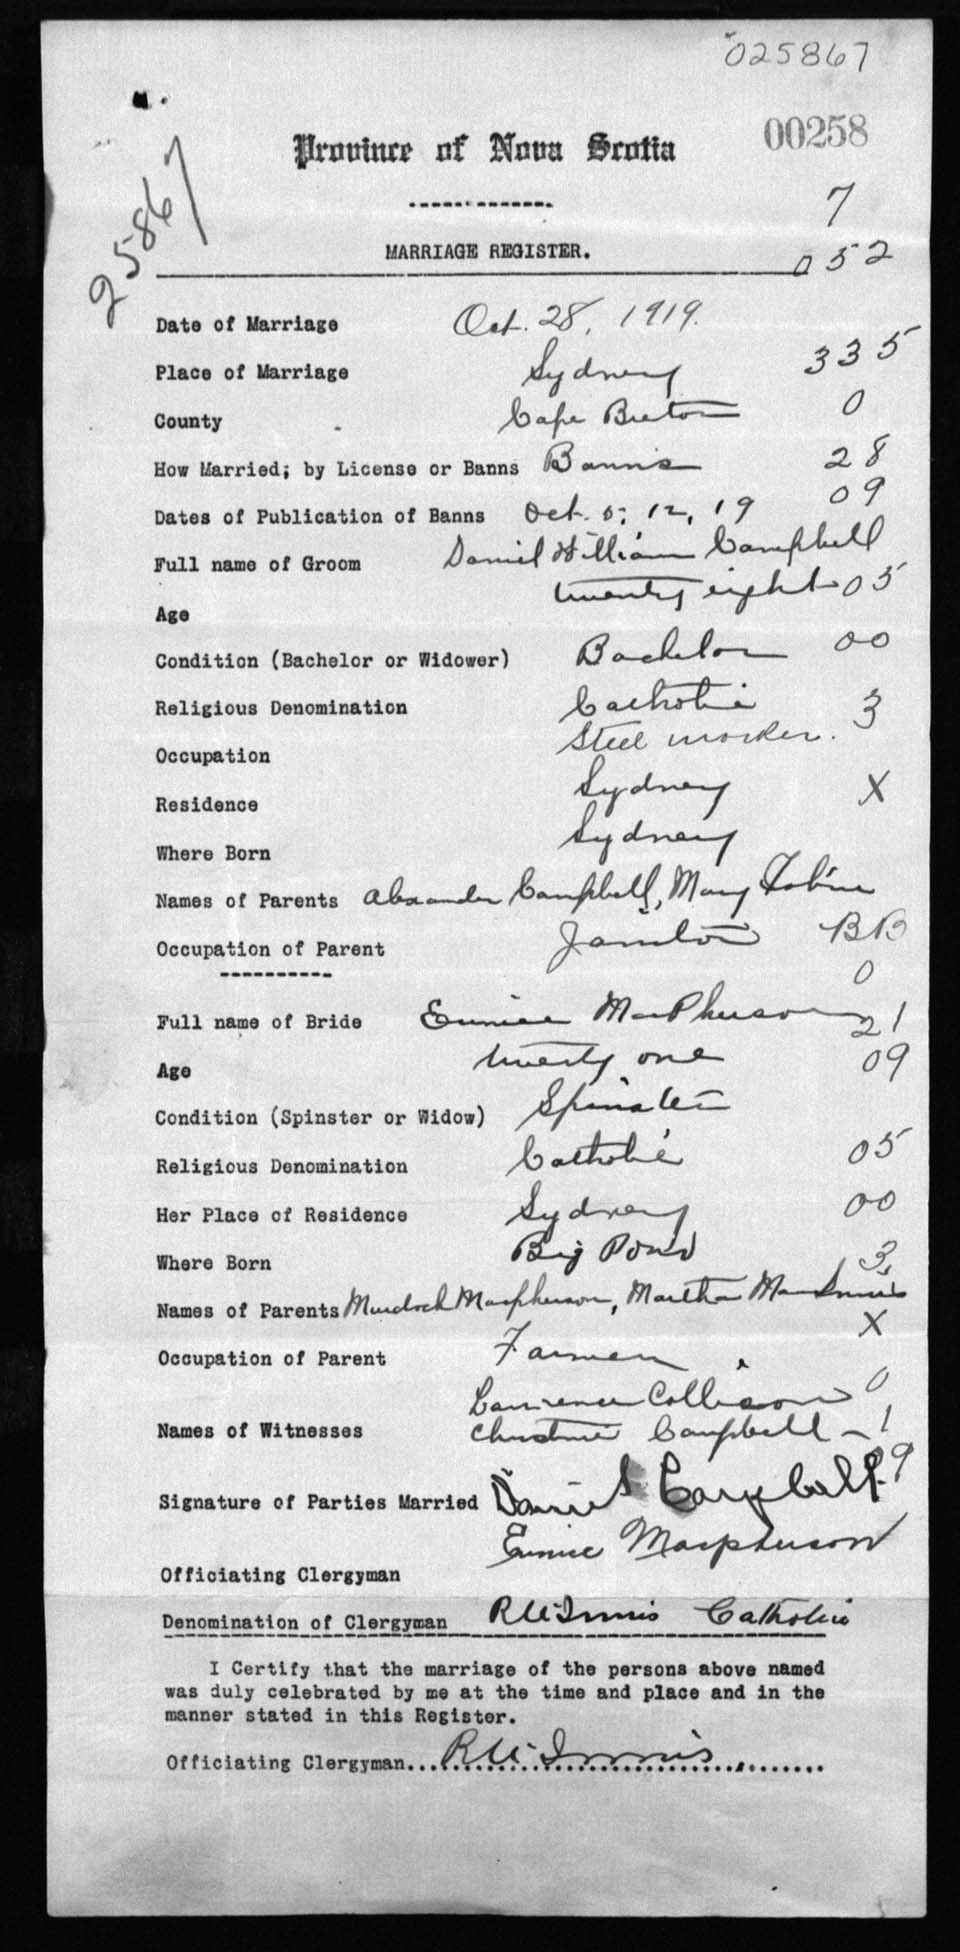 025867
00258
25867
Province of Nova Scotia
7
MARRIAGE REGISTER.
052
Date of Marriage Oct. 28, 1919.
Place of Marriage Sydney 335
County Cape Breton 0
How Married; by License or Banns Banns 28
Dates of Publication of Banns Oct. 5, 12, 19 09
Full name of Groom Daniel William Campbell
Age twenty eight 05
Condition (Bachelor or Widower) Bachelor 00
Religious Denomination Catholic 3
Occupation Steel worker.
Residence Sydney X
Where Born Sydney
Names of Parents Alexander Campbell, Mary Tobin
Occupation of Parent Janitor BB
0
Full name of Bride Eunice MacPherson 21
Age twenty one 09
Condition (Spinster or Widow) Spinster
Religious Denomination Catholic 05
Her Place of Residence Sydney 00
Where Born Big Pond 3
Names of Parents Murdoch Macpherson, Martha MacInnis
X
Occupation of Parent Farmer
Lawrence Collison 0
Names of Witnesses Christine Campbell 1
09
Signature of Parties Married Daniel Campbell
Eunice Macpherson
Officiating Clergyman
Denomination of Clergyman R McInnis Catholic
I Certify that the marriage of the persons above named
was duly celebrated by me at the time and place and in the
manner stated in this Register.
Officiating Clergyman R McInnis